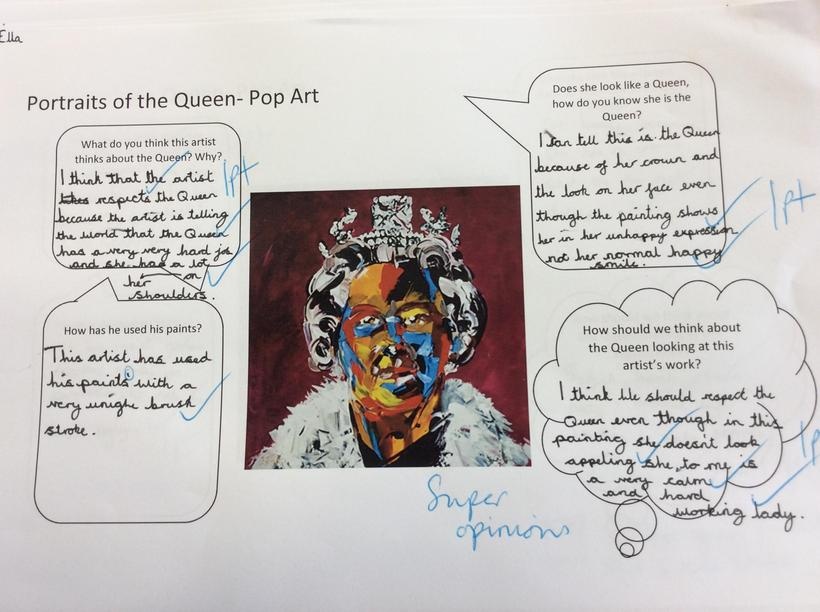 Ella
Portraits of the Queen- Pop Art
What do you think this artist
thinks about the Queen? Why?
I think that the artist
respicts the Queen
because the artist is telling
the world that the Queen
has a very very hard job
and she has a lot
on
her
shoulders.
1pt
How has he used his paints?
This artist has used
his paints with a
very unighe brush
stroke.
Does she look like a Queen,
how do you know she is the
Queen?
I can tell this is the Queen
because of her crown and
the look on her face even
though the painting shows
her in her unhappy expression
not her normal happy
smile.
1pt
How should we think about
the Queen looking at this
artist's work?
I think We should respect the
Queen even though in this
painting she doesnt look
appeling she, to me is
a very calm
and hard
working lady.
1p
Super
opinions